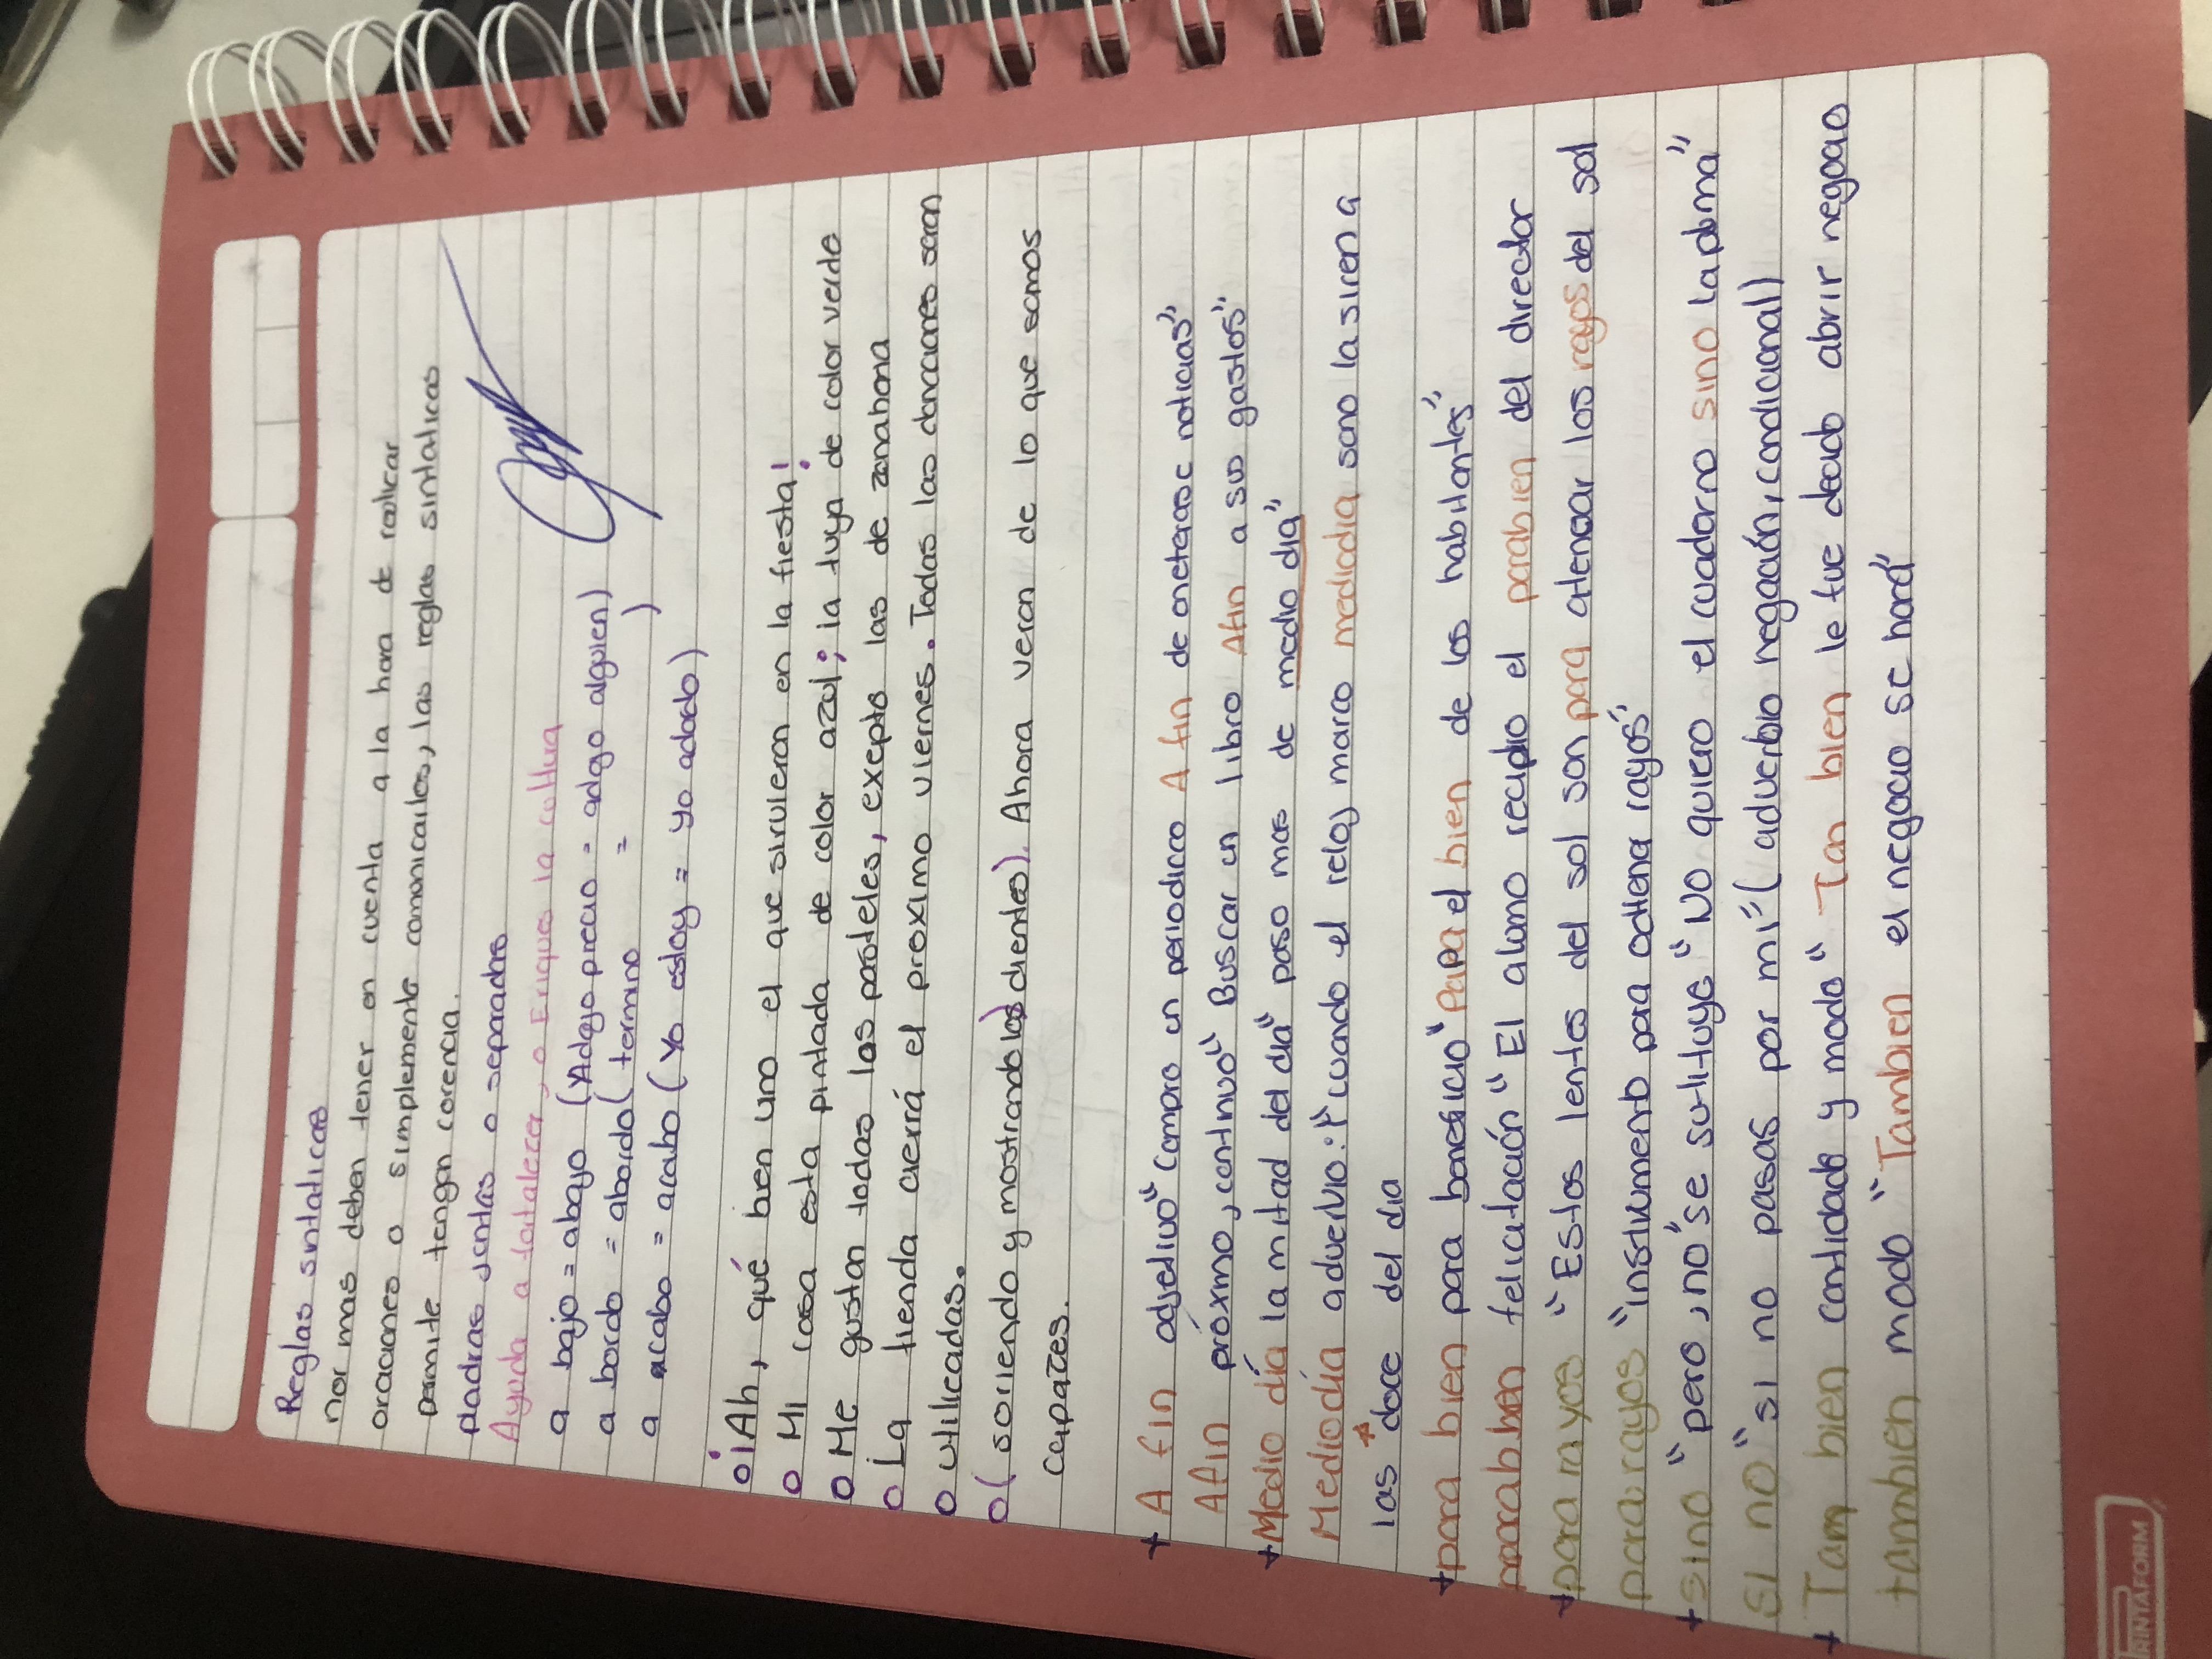 Reglas sintaticas
nor mas deben tener en cuenta a la hora de realicar
oraciones o simplemente comonicarlos, las reglas sintaticas
permite tengan corencia.
padras juntas o separadas
Ayuda a fortalecer, o Erique la cultura
a bajo = abajo (Adgo precio = adgo alguien)
a bordo = abordo ( termino = )
a acabo = acabo ( Yo estoy = yo adado)
o ¡Ah, qué bien uno el que sirvieron en la fiesta!
o Mi casa esta pintada de color azul; la tuya de color verde
o Me gustan todas las pasteles, exepto las de zanahona
o La tienda cuerrá el proximo viernes. Todas las donaciones seran
o utilicadas.
o ( soriendo y mostrando los dientes). Ahora veran de lo que somos
capaces.
+ A fin adjetivo "Compro un periodico A fin de eneterase noticias"
Afin próximo, continuo" Buscar un libro Afin a sus gastos"
+ Medio día la mitad del dia" paso mas de medio dia"
Mediodía advervio: " cuando el reloj marco mediodia sono la siren a
las doce del dia
+ para bien para beneficio" Para el bien de los habitantes"
parabien felicitación" El alumo recibio el parabien del director
+ para rayos "Estos lentes del sol son para atenuar los rayos del sol
pararayos "instrumento para odtiena rayos"
+ sino "pero, no" se sustituye" No quiero el cuaderno sino la pluma"
Si no "si no pasas por mi" (aduerbio negación, condicional)
+ Tam bien cantidad y modo" Tan bien le fue decido abrir negocio
tambien modo "Tambien el negocio se hará"
PRINTAFORM